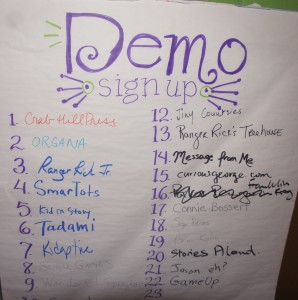 Demo
sign up
1. Crab Hill Press
2 ORGANA
3. Ranger Rick Jr.
4. SmarTots
5. Kid in Story
6. Tadami
7. Kidaptive
8
9
12. Tiny Countries
13. Ranger Rick's Treehouse
14. Message from Me
15. curiousgeorge.com
16. Franklin Frog
17 Connie Bossert
18
19
20 Stories Aloud
21 Jason eh?
22 GameUp
23